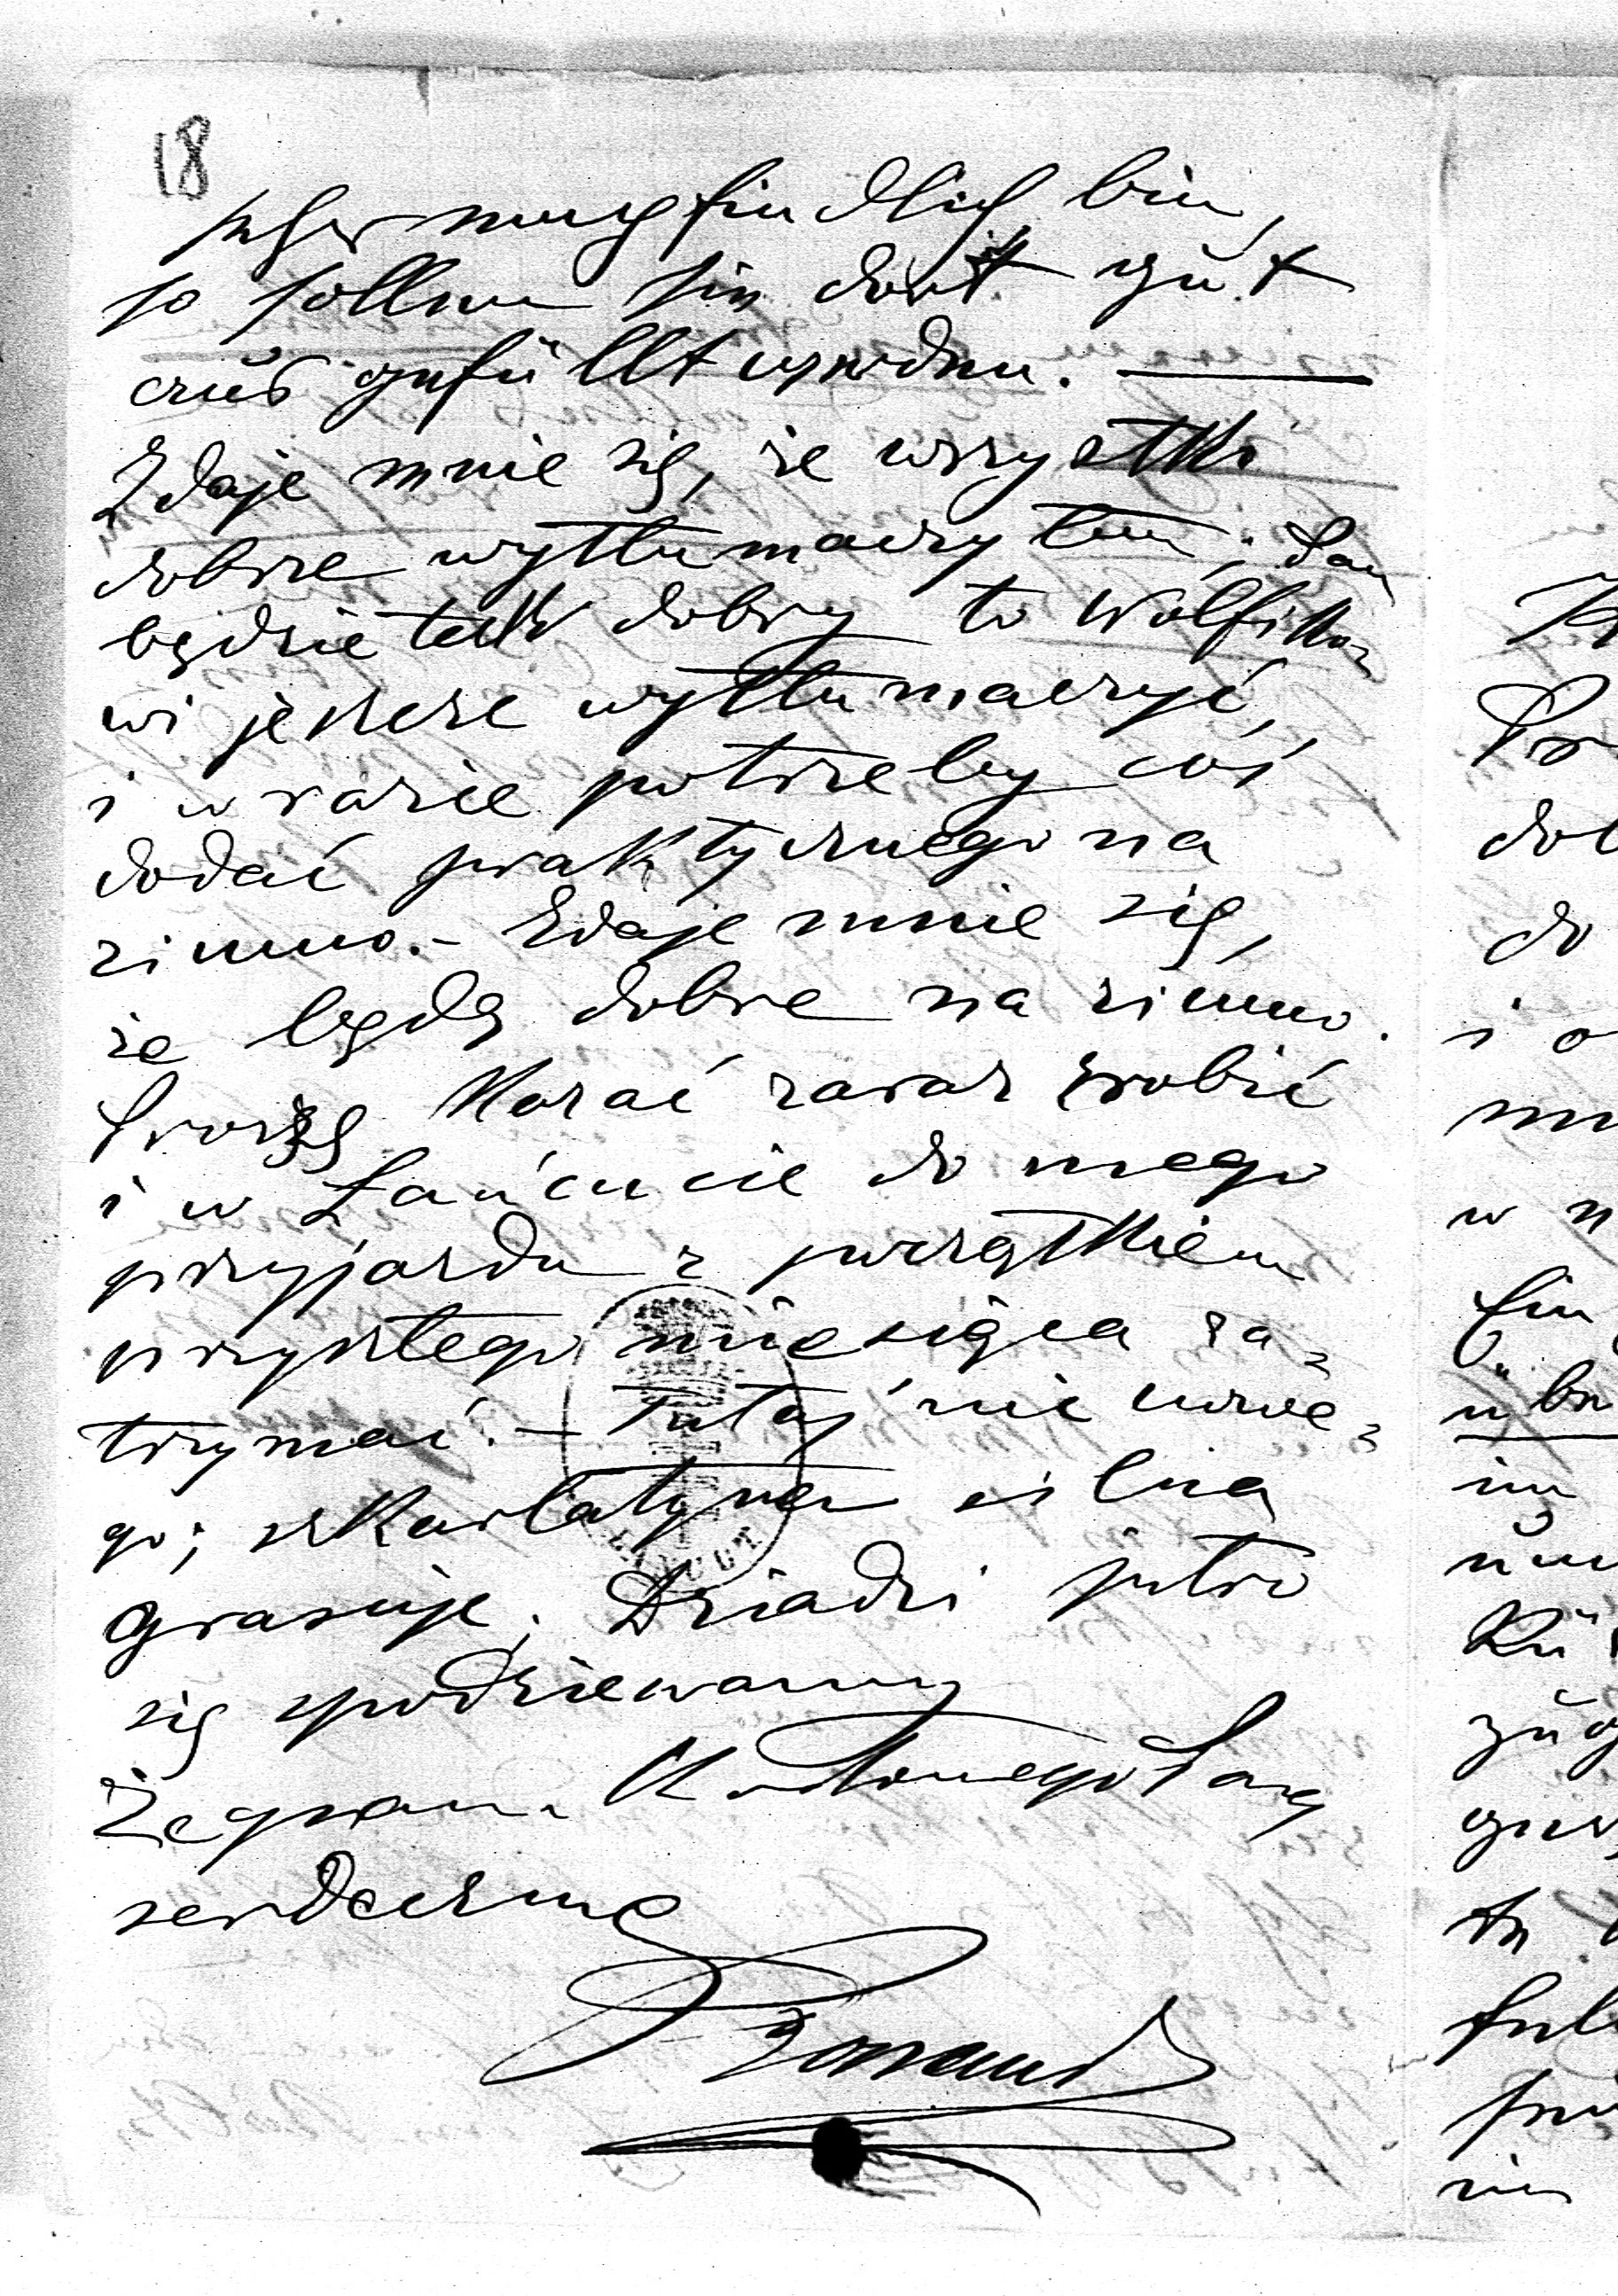 18
sehr empfindlich bin,
so sollen sie dort gut
ausgefüllt werden. —
Zdaje mnie się, że wszystko
dobrze wytłumaczyłem; Pan
będzie tak dobry to Wolfiko-
wi jeszcze wytłumaczyć,
i w razie potrzeby coś
dodać praktycznego na
zimno. - Zdaje mnie się,
że będą dobre na zimno.
Proszę kazać zaraz zrobić
i w Łańcucie do mego
przyjazdu z początkiem
przyszłego miesiąca za-
trzymać. - Tutaj nic nowe-
go; szkarlatyna silna
grasuje; Dziadzi jutro
się spodziewamy
Żegnam Kochanego Pana
serdecznie
Roman
ŁAŃCUT
do
i o
w n
im